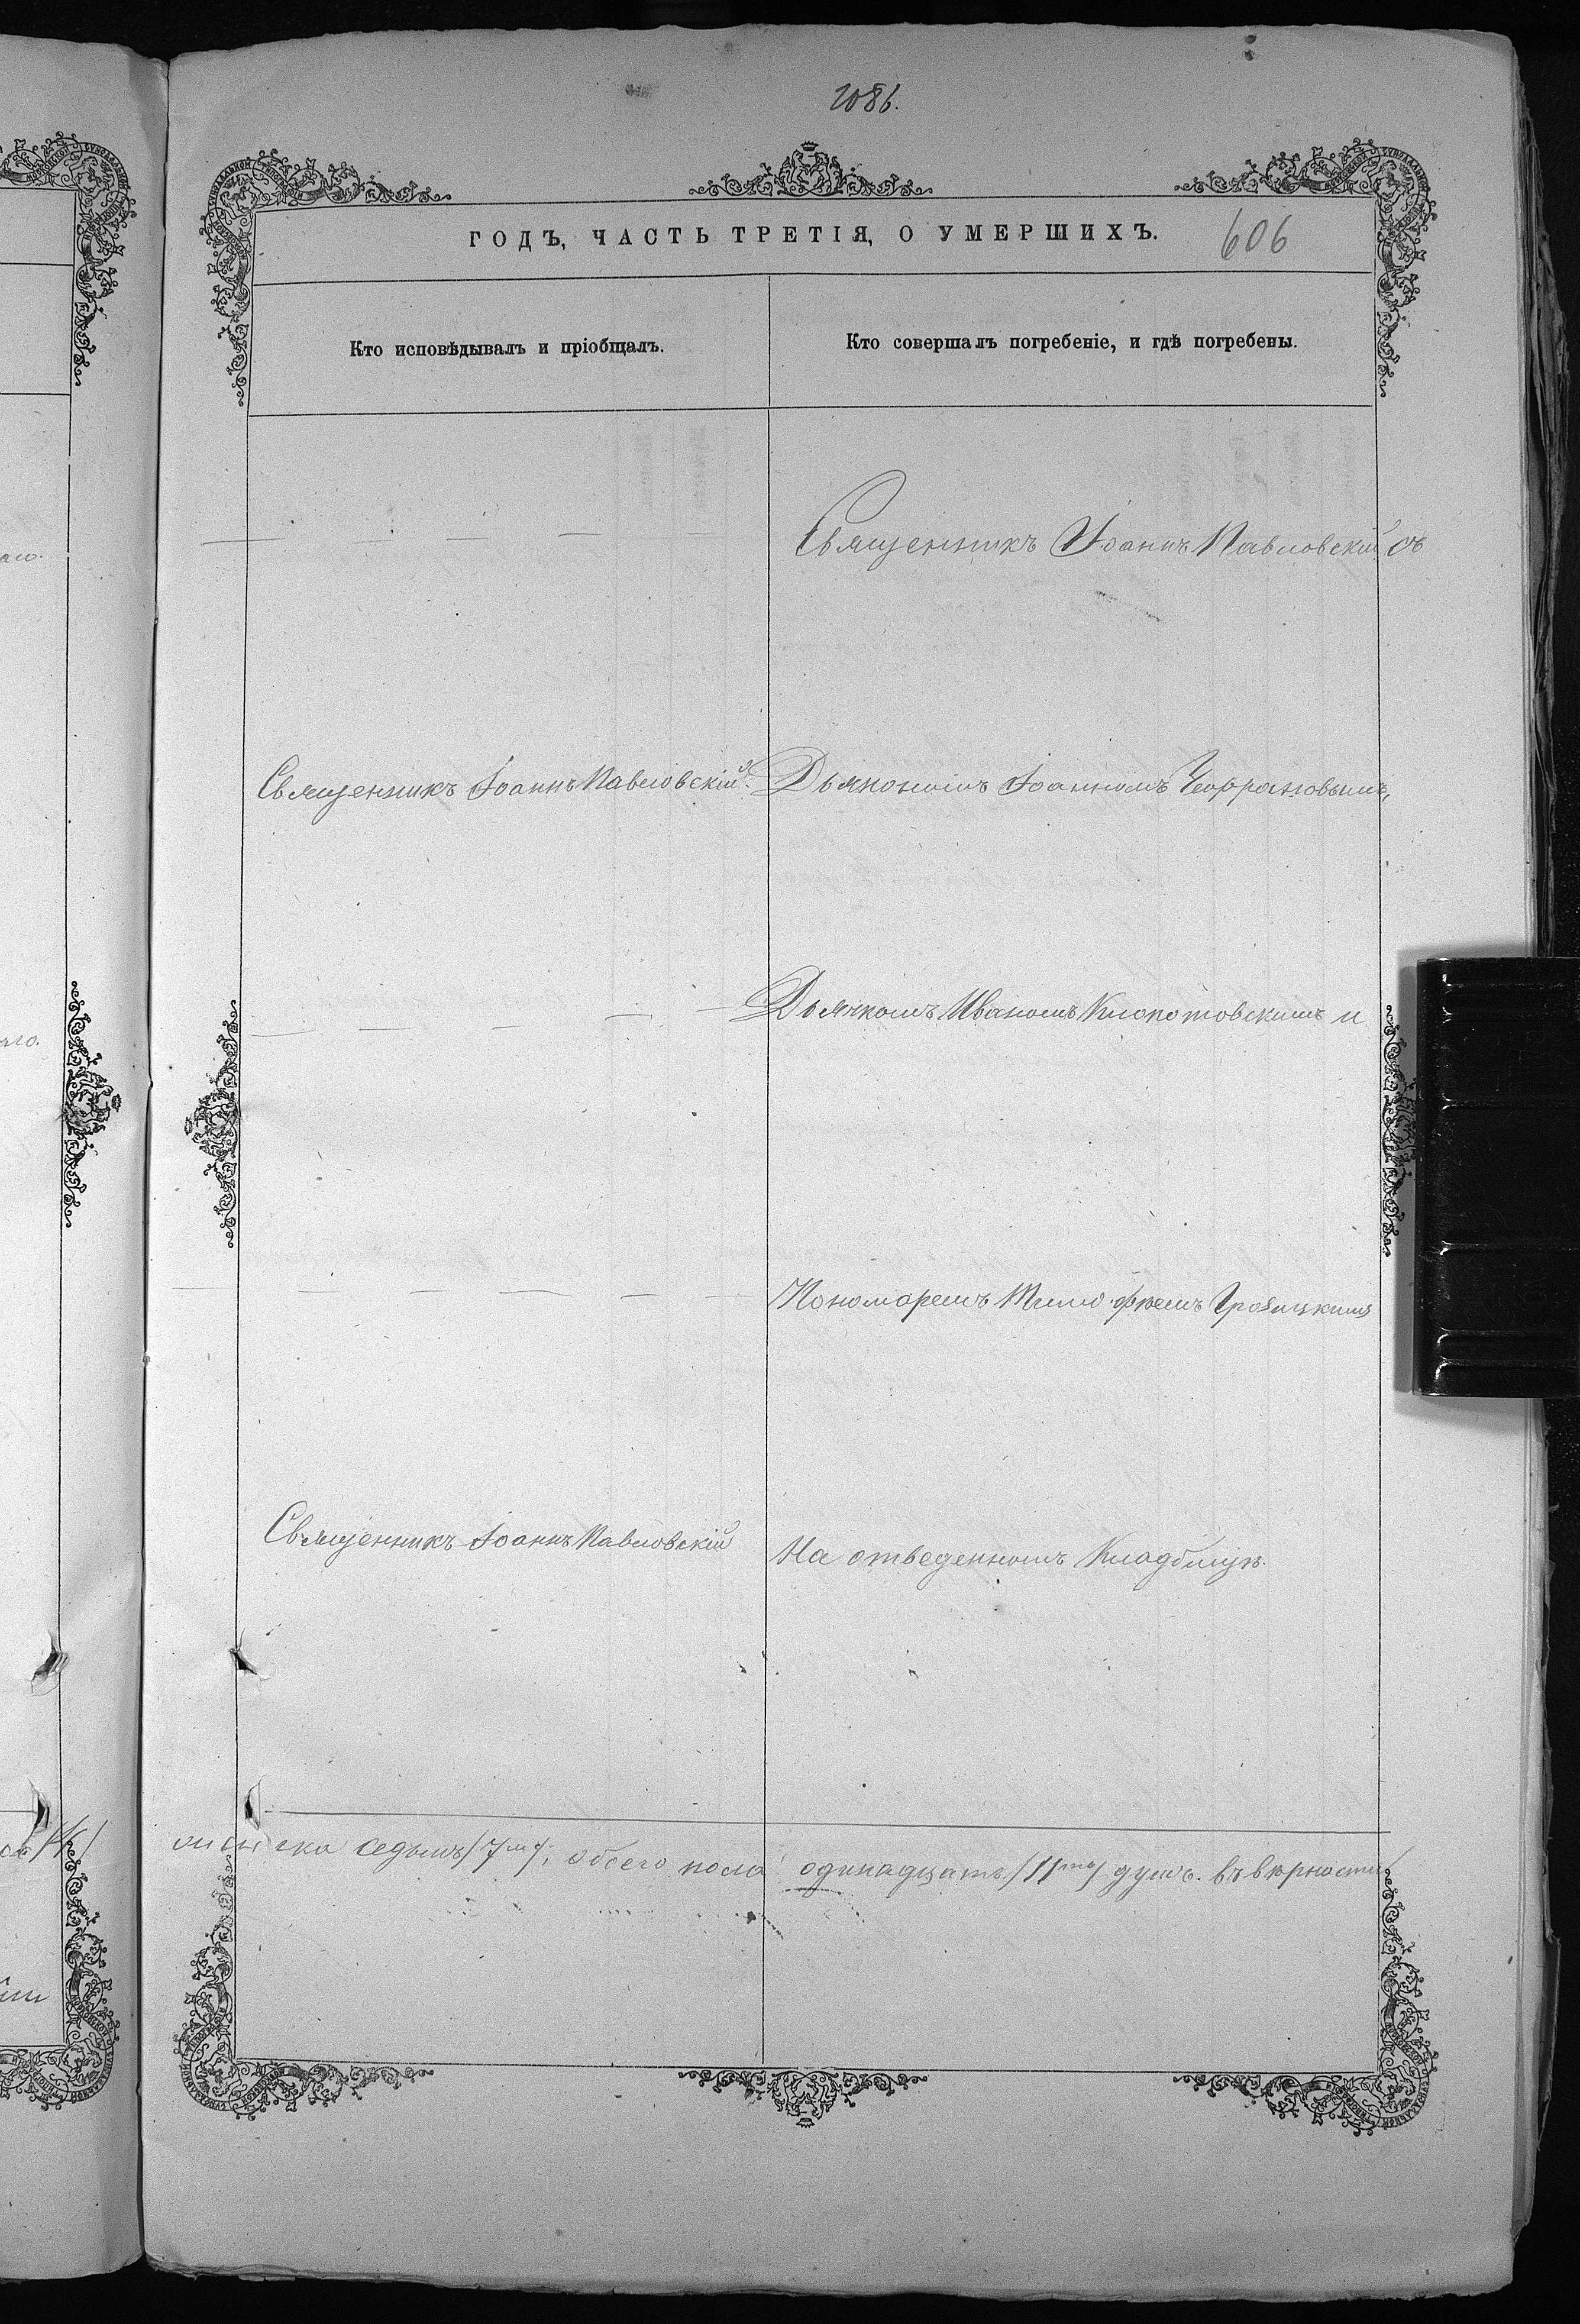 1086.
ГОДЪ, ЧАСТЬ ТРЕТІЯ, О УМЕРШИХЪ. 606
Кто исповѣдывалъ и пріобщалъ.
Кто совершалъ погребеніе, и гдѣ погребены.
Священникъ Іоаннъ Павловскій съ
Священникъ Іоаннъ Павловскій.
Дьякономъ Іоанномъ
Дьячкомъ Иваномъ Клопотовскимъ и
Пономаремъ Тимофѣемъ
Священникъ Іоаннъ Павловскій
На отведенномъ Кладбищѣ.
седьмъ /7мъ/, обоего пола одинадцать /11ть/ душъ. въ вѣрности